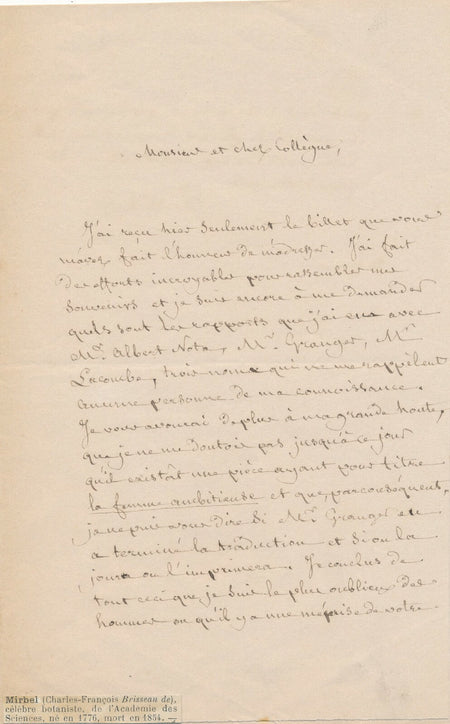 Monsieur et cher Collègue,
J'ai reçu hier seulement le billet que vous
m'avez fait l'honneur de m'adresser. J'ai fait
des efforts incroyable pour rassembler mes
souvenirs et je suis encore à me demander
quels sont les rapports que j'ai eus avec
Mr. Albert Nota, Mr. Granger, Mr
Lacombe, trois noms qui ne me rappèlent
aucune personne de ma connoissance.
Je vous avourai de plus à ma grande honte,
que je ne me doutois pas jusqu'à ce jour
qu'il existât une pièce ayant pour titre
la femme ambitieuse et que, par conséquent,
je ne puis vous dire si Mr. Granger en
a terminé la traduction et si on la
jouera ou l'imprimera. Je conclus de
tout ceci que je suis le plus oublieux des
hommes ou qu'il y a une méprise de votre
Mirbel (Charles-François Brisseau de),
célèbre botaniste, de l'Academie des
Sciences, né en 1776, mort en 1854. —